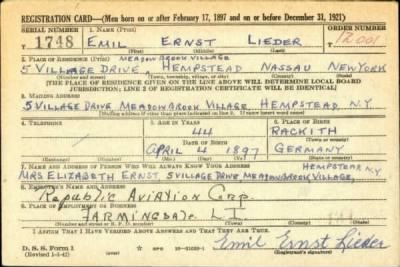 REGISTRATION CARD—(Men born on or after February 17, 1897 and on or before December 31, 1921)
SERIAL NUMBER 1. NAME (Print) ORDER NUMBER
T 1748 EMIL ERNST LIEDER 12,001
(First) (Middle) (Last)
2. PLACE OF RESIDENCE (Print) MEADOWBROOK VILLAGE
5 VILLAGE DRIVE, HEMPSTEAD NASSAU NEW YORK
(Number and street) (Town, township, village, or city) (County) (State)
[THE PLACE OF RESIDENCE GIVEN ON THE LINE ABOVE WILL DETERMINE LOCAL BOARD
JURISDICTION; LINE 2 OF REGISTRATION CERTIFICATE WILL BE IDENTICAL]
3. MAILING ADDRESS
5 VILLAGE DRIVE MEADOWBROOK VILLAGE, HEMPSTEAD, N.Y.
[Mailing address if other than place indicated on line 2. If same insert word same]
4. TELEPHONE 5. AGE IN YEARS 6. PLACE OF BIRTH
44 RACKITH
DATE OF BIRTH (Town or county)
APRIL 4 1897 GERMANY
(Exchange) (Number) (Mo.) (Day) (Yr.) (State or country)
7. NAME AND ADDRESS OF PERSON WHO WILL ALWAYS KNOW YOUR ADDRESS HEMPSTEAD, N.Y.
MRS ELIZABETH ERNST, 5 VILLAGE DRIVE MEADOWBROOK VILLAGE,
8. EMPLOYER'S NAME AND ADDRESS
Republic AVIATION Corp.
9. PLACE OF EMPLOYMENT OR BUSINESS
FARMINGDALE L.I.
(Number and street or R. F. D. number) (Town) (County) (State)
I AFFIRM THAT I HAVE VERIFIED ABOVE ANSWERS AND THAT THEY ARE TRUE.
D. S. S. Form 1
(Revised 1-1-42) Emil Ernst Lieder
(Registrant's signature)